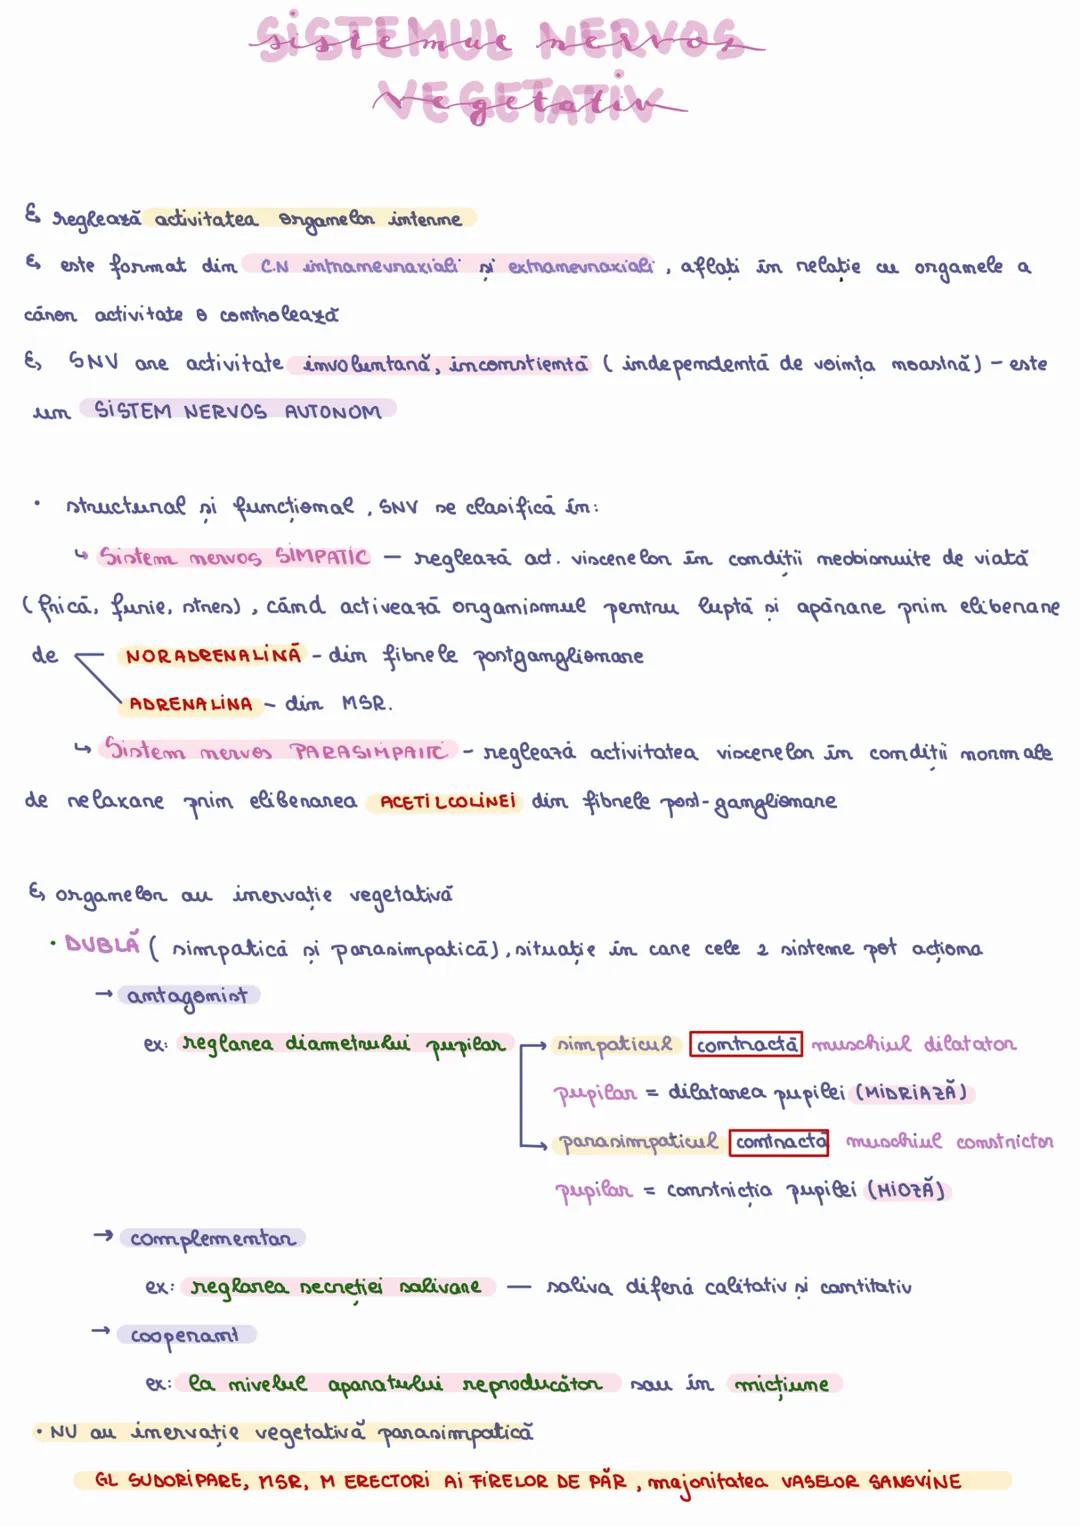 SISTEMUL NERVOS
sistemul nervos
VEGETATIV
vegetativ
reglează activitatea organelor interne
este format din C.N intranevraxiali și extranevraxiali, aflați în relație cu organele a
căror activitate o controlează
SNV are activitate involuntară, inconștientă (independentă de voința noastră) - este
un SISTEM NERVOS AUTONOM
• structural și funcțional, SNV se clasifică în:
↳ Sistem nervos SIMPATIC — reglează act. viscerelor în condiții neobișnuite de viată
(frică, furie, stres), când activează organismul pentru luptă și apărare prin eliberare
de NORADRENALINĂ - din fibrele postganglionare
ADRENALINA - din MSR.
↳ Sistem nervos PARASIMPATIC - reglează activitatea viscerelor în condiții normale
de relaxare prin eliberarea ACETILCOLINEI din fibrele post-ganglionare
organelor au inervație vegetativă
• DUBLĂ (simpatică și parasimpatică), situație în care cele 2 sisteme pot acționa
→ antagonist
ex: reglarea diametrului pupilar → simpaticul contractă muschiul dilatator
pupilar = dilatarea pupilei (MIDRIAZĂ)
→ parasimpaticul contractă muschiul constrictor
pupilar = constricția pupilei (MIOZĂ)
→ complementar
ex: reglarea secreției salivare — saliva diferă calitativ și cantitativ
→ cooperant
ex: la nivelul aparatului reproducător sau în micțiune
• NU au inervație vegetativă parasimpatică
GL SUDORIPARE, MSR, M ERECTORI AI FIRELOR DE PĂR, majoritatea VASELOR SANGVINE